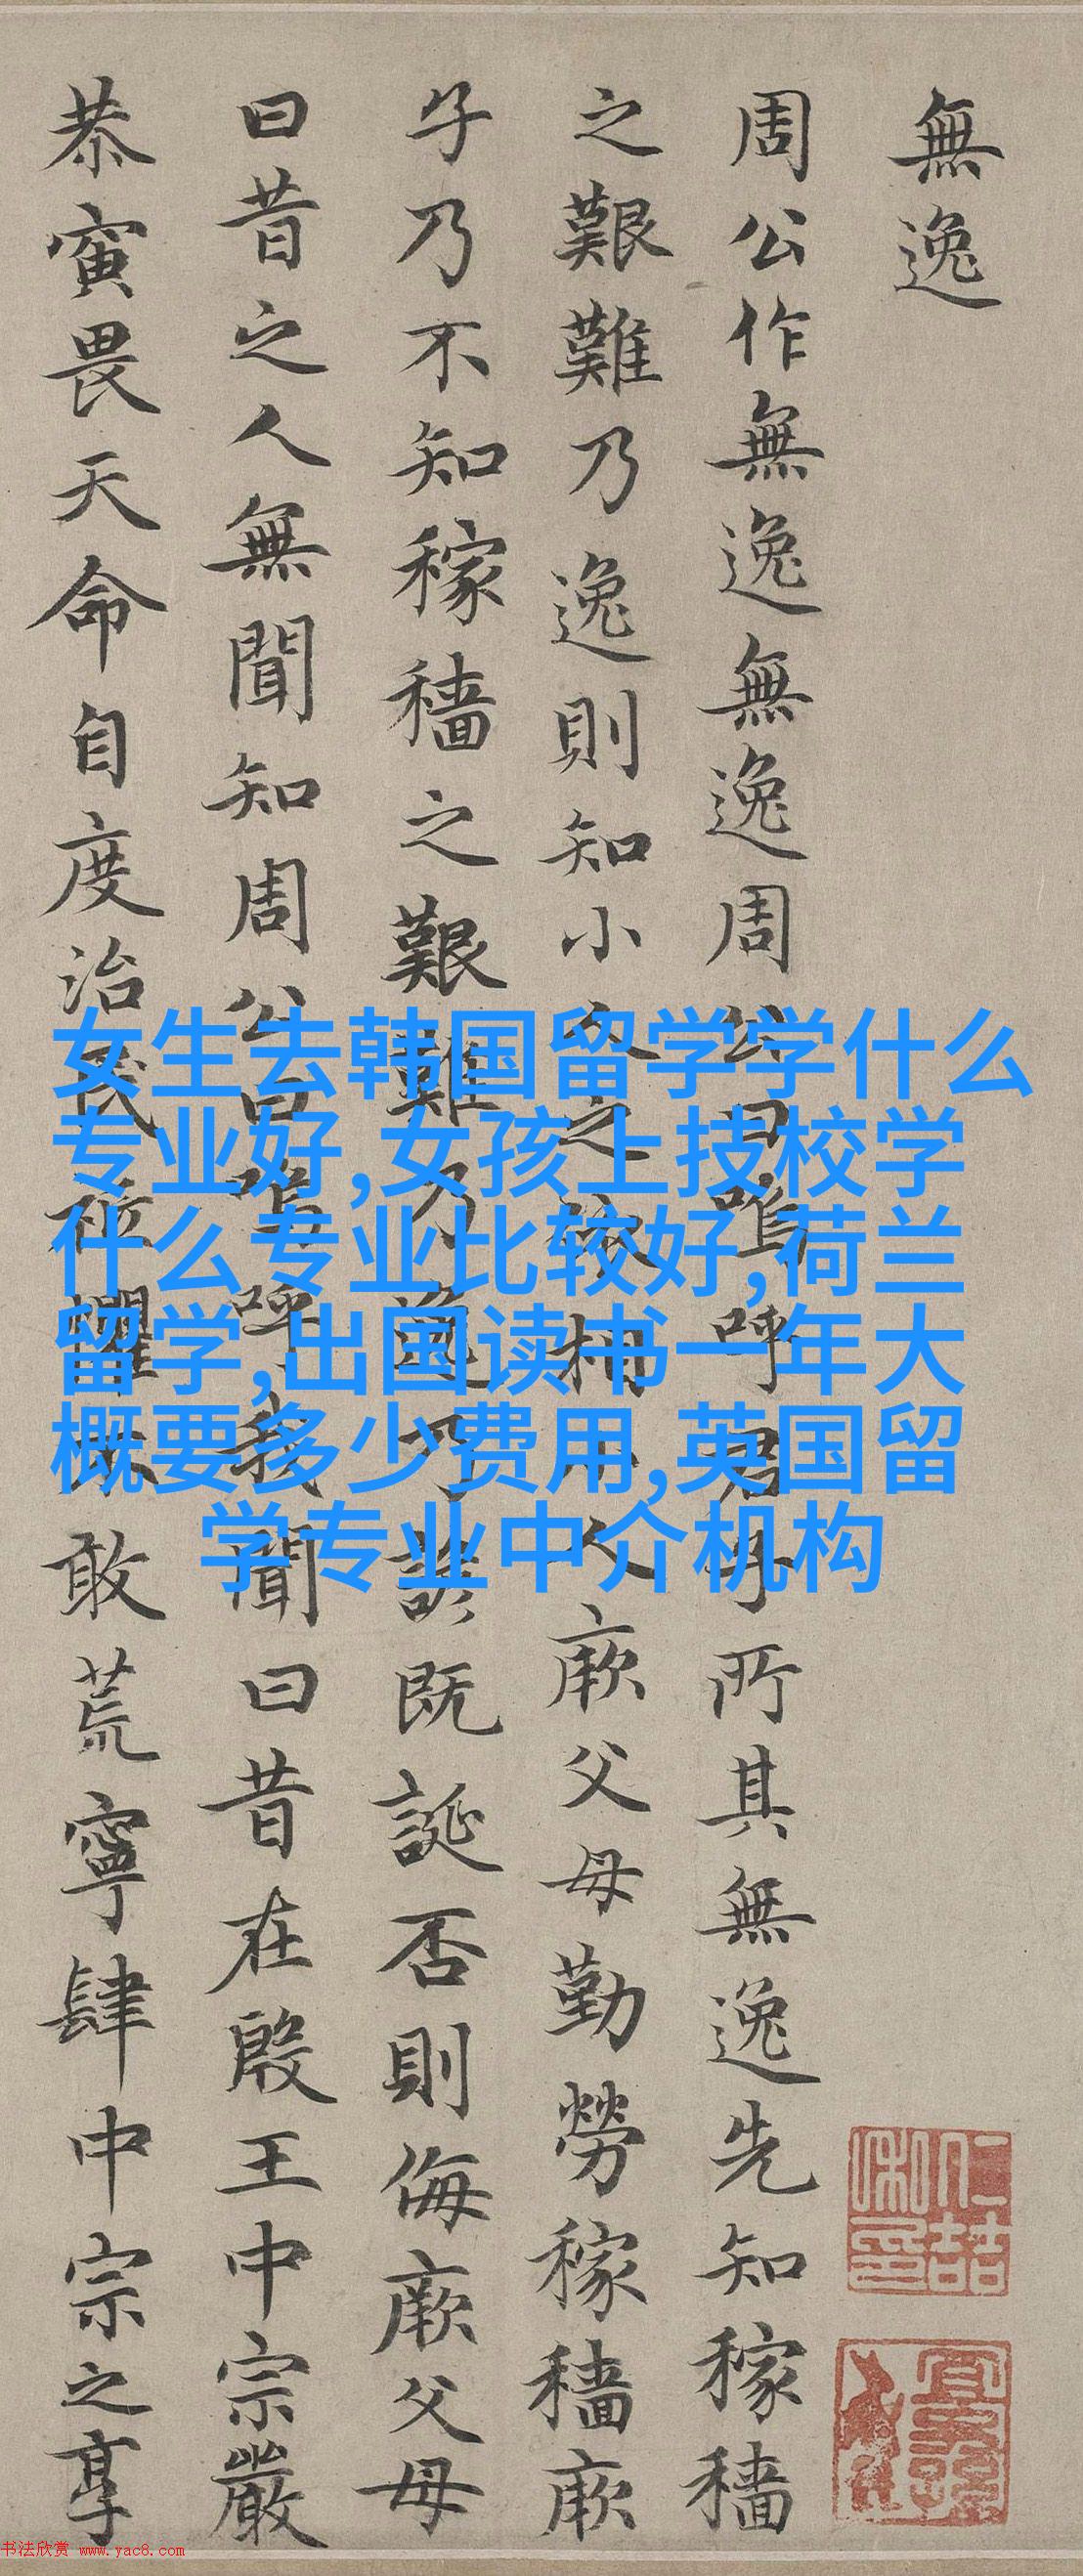 無逸
周公作無逸無逸周公曰嗚呼君子所其無逸先知稼穡
之艱難乃逸則知小人之依相小人厥父母勤勞稼穡厥
子乃不知稼穡之艱難乃逸乃諺既誕否則侮厥父母
曰昔之人無聞知周公曰嗚呼我聞曰昔在殷王中宗嚴
恭寅畏天命自度治民祗懼不敢荒寧肆中宗之享
女生去韩国留学学什么
专业好,女孩上技校学
什么专业比较好,荷兰
留学,出国读书一年大
概要多少费用,英国留
学专业中介机构
书法欣赏 www.yac8.com